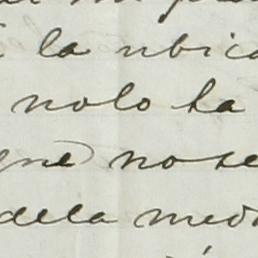 la ubica
nolo ha
que nose
dela med